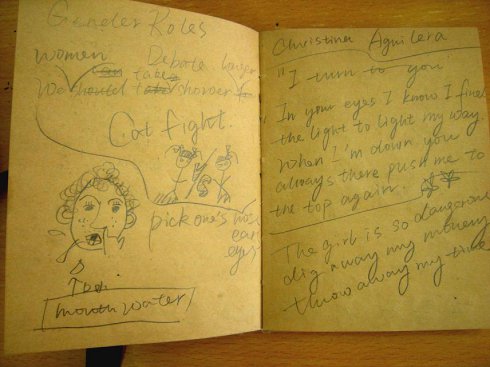 Gender Roles
women Debate longer
can take
We should take shower
Cat fight.
pick one's nose
ear
eyes
mouth water
Christina Aguilera
"I turn to you
"In your eyes I know I find
the light to light my way.
When I'm down you
always there push me to
the top again.
The girl is so dangerous
dig away my money
throw away my time